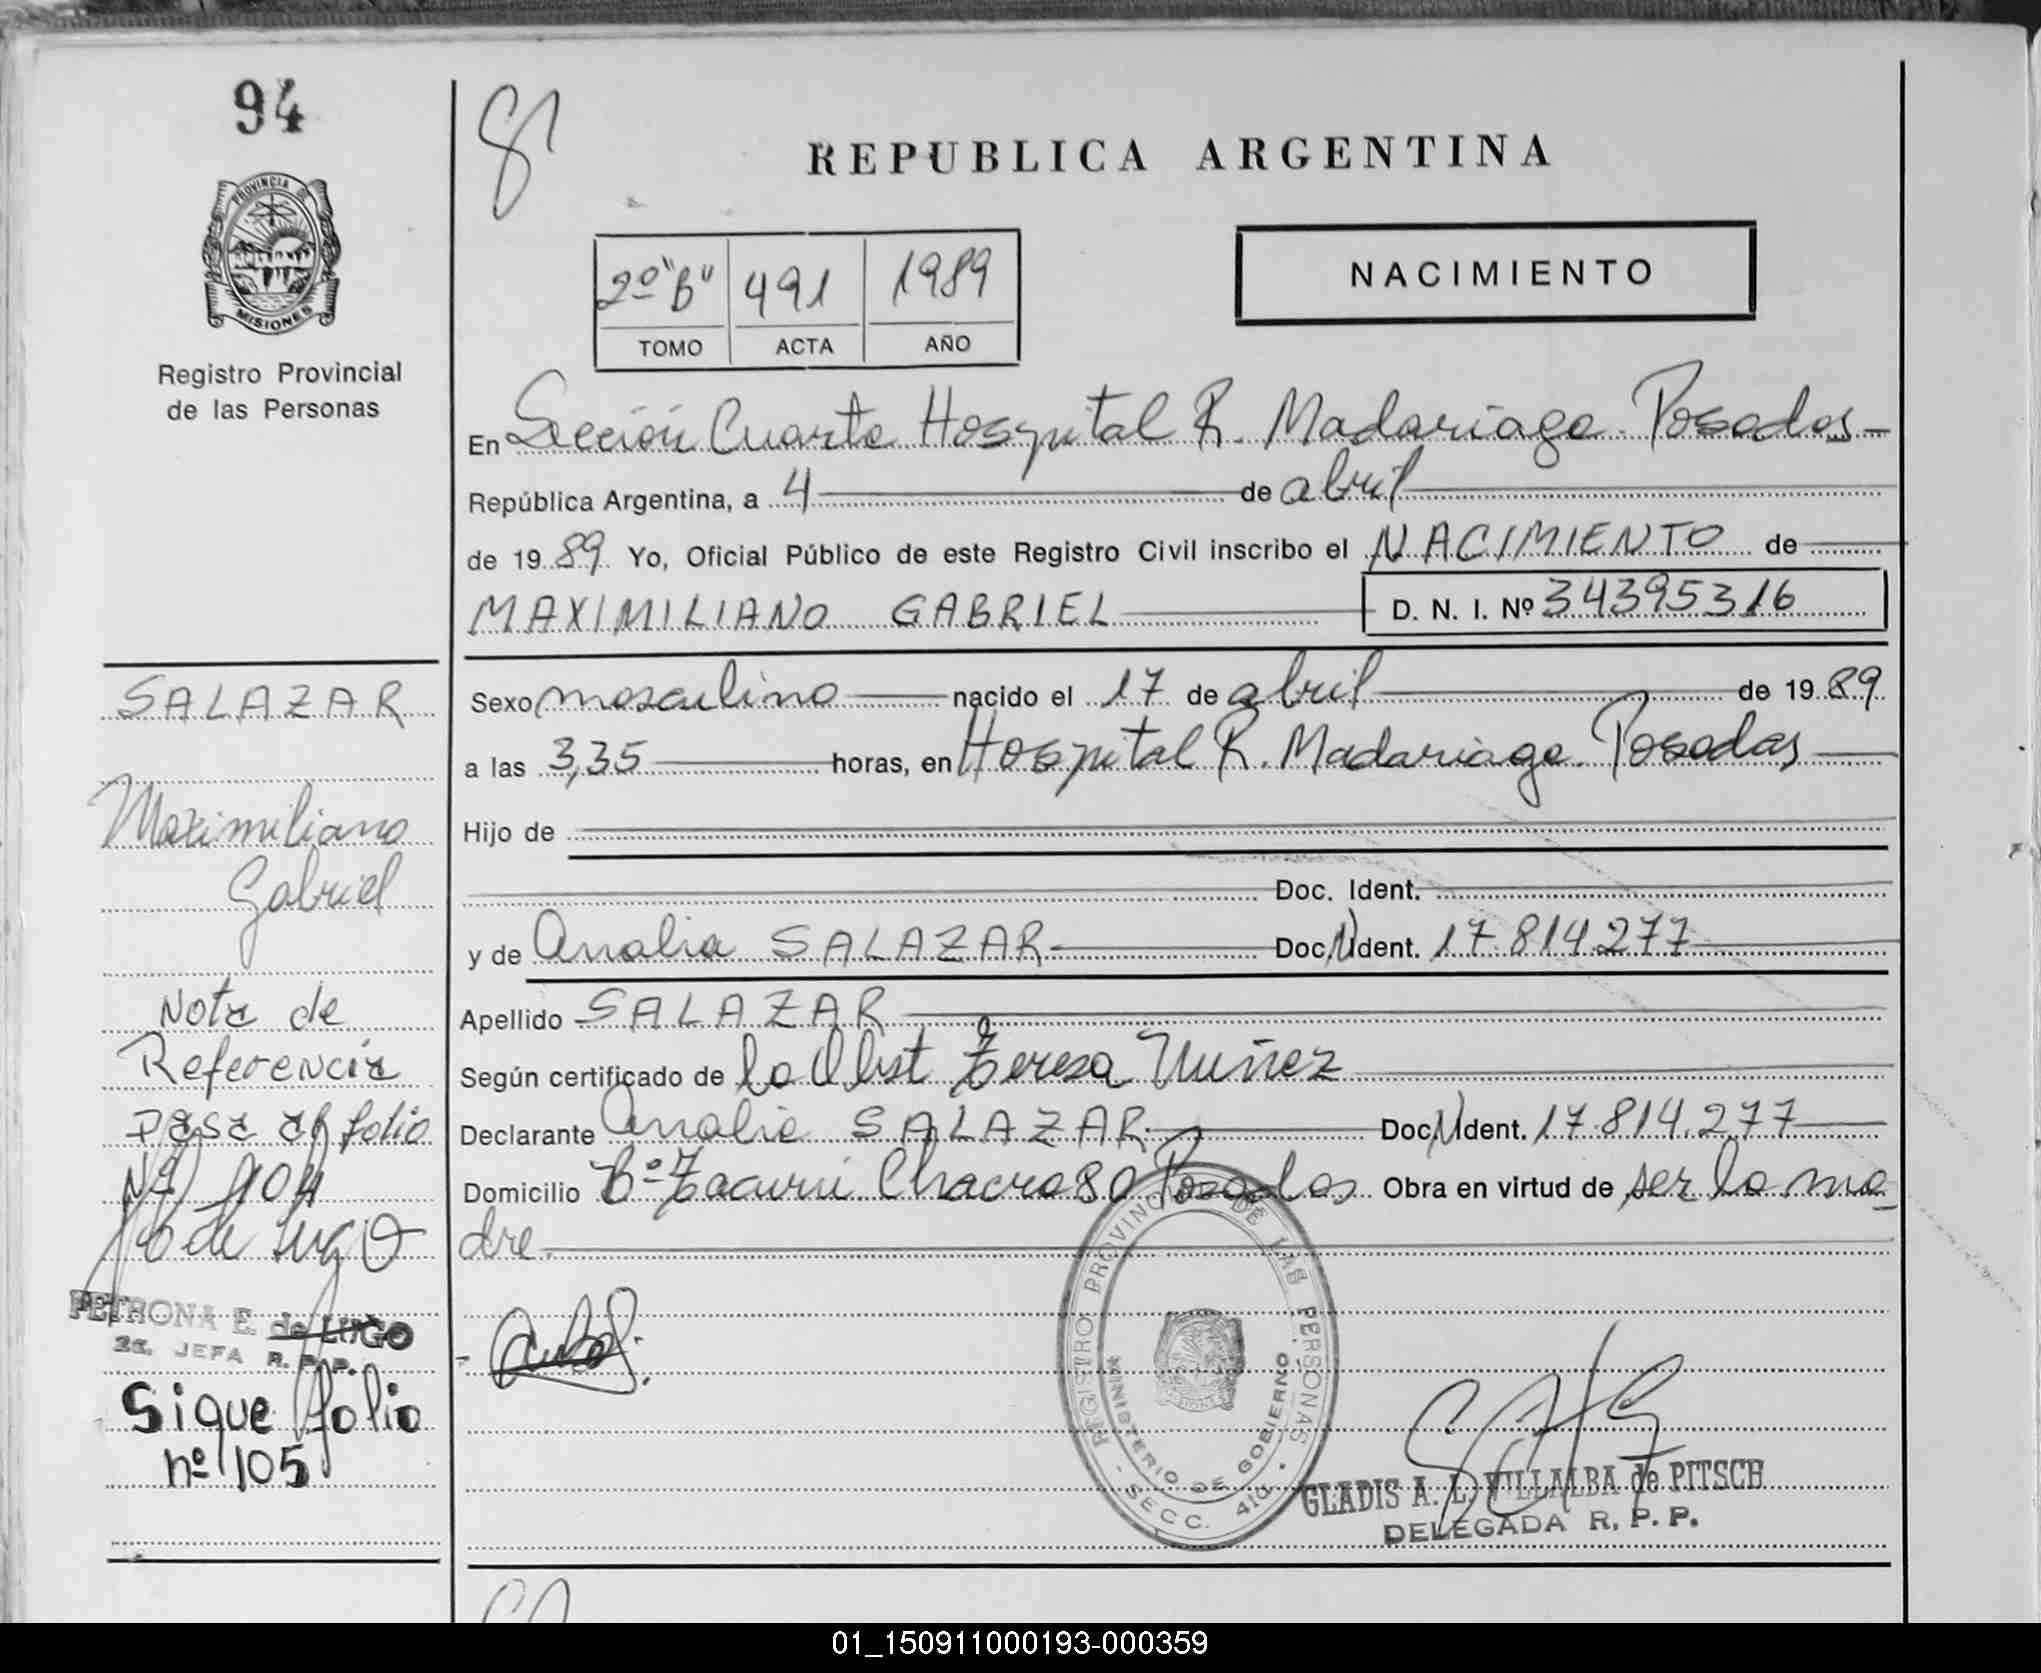 94
PROVINCIA D
MISIONES
Registro Provincial
de las Personas
REPUBLICA ARGENTINA
2º "B" 491 1989
TOMO ACTA AÑO
NACIMIENTO
En Sección Cuarta Hospital R. Madariaga. Posadas
República Argentina, a 4 de abril
de 19 89 Yo, Oficial Público de este Registro Civil inscribo el NACIMIENTO de
MAXIMILIANO GABRIEL D. N. I. Nº 34395316
Sexo masculino nacido el 17 de abril de 19 89
a las 3,35 horas, en Hospital R. Madariaga. Posadas
Hijo de
Doc. Ident.
y de Analia SALAZAR Doc. Ident. 17.814.277
Apellido SALAZAR
Según certificado de la Obst Teresa Nuñez
Declarante Analia SALAZAR Doc. Ident. 17.814.277
Domicilio Bº Tacurú Chacra 80 Posadas Obra en virtud de ser la ma
dre.
SALAZAR
Maximiliano
Gabriel
Nota de
Referencia
pasa al folio
Nº 104
de Lugo
PETRONA E. de LUGO
2a. JEFA R. P. P.
Sigue folio
nº 105
REGISTRO PROVINCIAL DE LAS PERSONAS
MINISTERIO DE GOBIERNO
SECC. 4ta.
GLADIS A. L. VILLALBA de PITSCH
DELEGADA R. P. P.
01_150911000193-000359